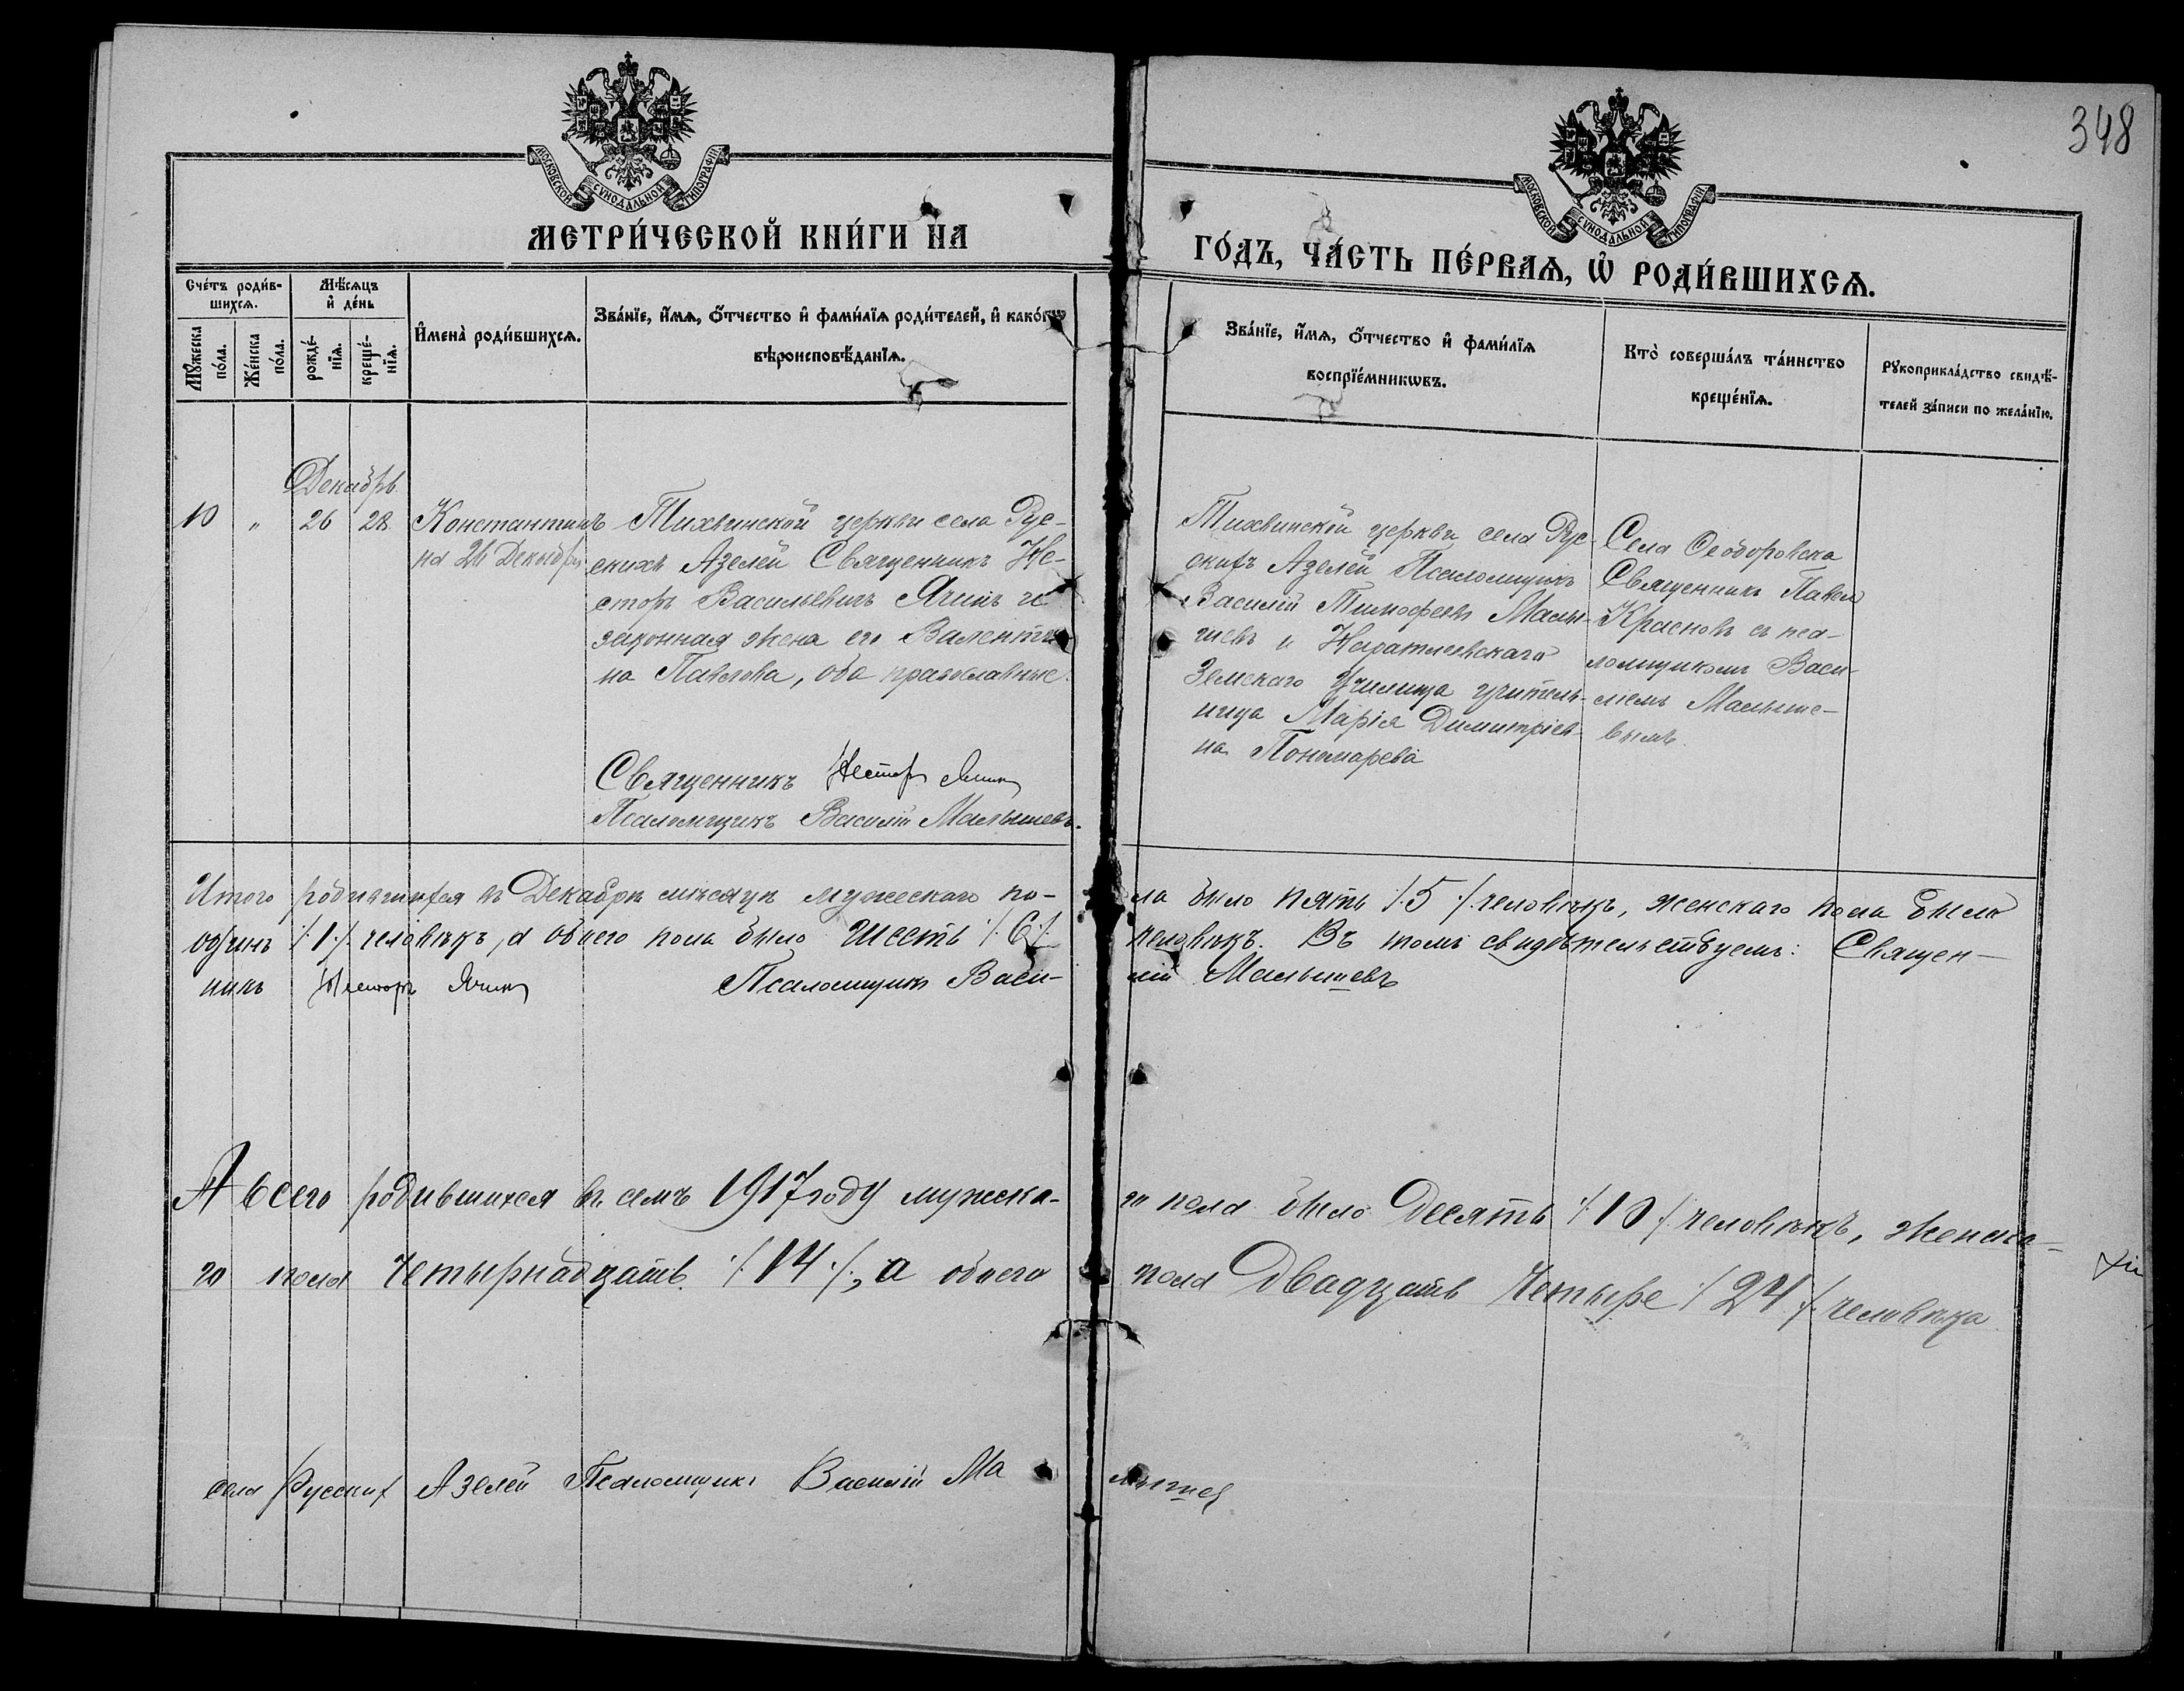 348
МОСКОВСКОЙ СУНОДАЛЬНОЙ ТИПОГРАФІИ
МОСКОВСКОЙ СУНОДАЛЬНОЙ ТИПОГРАФІИ
МЕТРИ́ЧЕСКОЙ КНИ́ГИ НА
ГО́ДЪ, ЧА́СТЬ ПЕ́РВАѦ, Ѡ РОДИ́ВШИХСѦ.
Сче́тъ роди́в-
шихсѧ.
Мѣ́сѧцъ
и҆ де́нь
Мꙋ́жеска
по́ла.
Же́нска
по́ла.
рожде́-
нїѧ.
креще́-
нїѧ.
И҆мена̀ роди́вшихсѧ.
Зва́нїе, и҆́мѧ, ѻ҆́тчество и҆ фами́лїѧ роди́телей, и҆ како́гѡ
вѣроисповѣ́данїѧ.
Зва́нїе, и҆́мѧ, ѻ҆́тчество и҆ фами́лїѧ
воспрїе́мникѡвъ.
Кто̀ соверша́лъ та́инство
креще́нїѧ.
Рꙋкоприкла́дство свидѣ́-
телей за́писи по жела́нїю.
Декабрь
10 " 26 28
Константинъ
на 26 Декабря
Тихвинской церкви села Рус-
скихъ Азелей Священникъ Не-
сторъ Васильевичъ Ячинъ и
законная жена его Валенти-
на Павлова, оба православные.
Священникъ Нестор Ячин
Псаломщикъ Василій Малышевъ.
Тихвинской церкви села Рус-
скихъ Азелей Псаломщикъ
Василій Тимофеевъ Малы-
шевъ и
Земскаго Училища учитель-
ница Марія Димитріев-
на Пономарева
Села Ѳеодоровска
Священникъ Павел
Красновъ съ пса-
ломщикомъ Васи-
ліемъ Малыше-
вымъ.
Итого родившихся въ Декабрѣ мѣсяцѣ мужескаго по-
ла было пять /:5:/ человѣкъ, женскаго пола было
одинъ /:1:/ человѣкъ, а обоего пола было шесть /:6:/
человѣкъ. Въ томъ свидѣтельствуемъ: Священ-
никъ Несторъ Ячин Псаломщикъ Васи-
лій Малышевъ
А всего родившихся въ семъ 1917 году мужска-
го пола было Десять /:10:/ человѣкъ, женска-
го пола Четырнадцать /:14:/, а обоего
пола Двадцать Четыре /:24:/ человѣка
села Русских Азелей Псаломщикъ Василій Ма
лышев